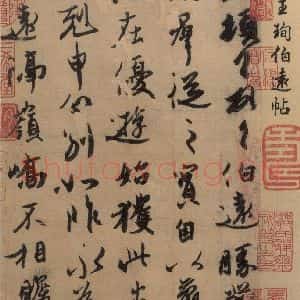 王珣伯遠帖
珣頓首頓首伯遠勝業
群從之寶自以羸
在優遊始獲此出
剋申分別如昨永為
遠隔嶺嶠不相瞻